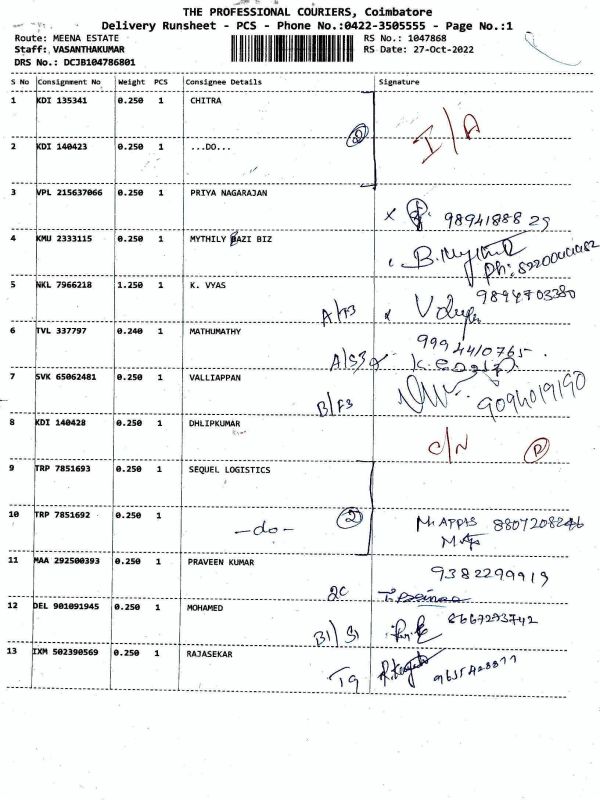 THE PROFESSIONAL COURIERS, Coimbatore
Delivery Runsheet - PCS - Phone No.:0422-3505555 - Page No.:1
Route: MEENA ESTATE RS No.: 1047868
Staff: VASANTHAKUMAR RS Date: 27-Oct-2022
DRS No.: DCJB104786801
S No Consignment No Weight PCS Consignee Details Signature
1 KDI 135341 0.250 1 CHITRA
2 I/A
2 KDI 140423 0.250 1 ...DO...
3 VPL 215637066 0.250 1 PRIYA NAGARAJAN
x 9894188829
4 KMU 2333115 0.250 1 MYTHILY BAZI BIZ
B. Mythili
Ph:
5 NKL 7966218 1.250 1 K. VYAS
9894703380
A/F3
6 TVL 337797 0.240 1 MATHUMATHY
9994410765
A/S3
7 SVK 65062481 0.250 1 VALLIAPPAN
B/F3 9094019190
8 KDI 140428 0.250 1 DHLIPKUMAR
C/N
9 TRP 7851693 0.250 1 SEQUEL LOGISTICS
10 TRP 7851692 0.250 1 -do- 2
8807208246
11 MAA 292500393 0.250 1 PRAVEEN KUMAR
9382299919
2C
12 DEL 901091945 0.250 1 MOHAMED
8667293742
B1/S1
13 IXM 502390569 0.250 1 RAJASEKAR